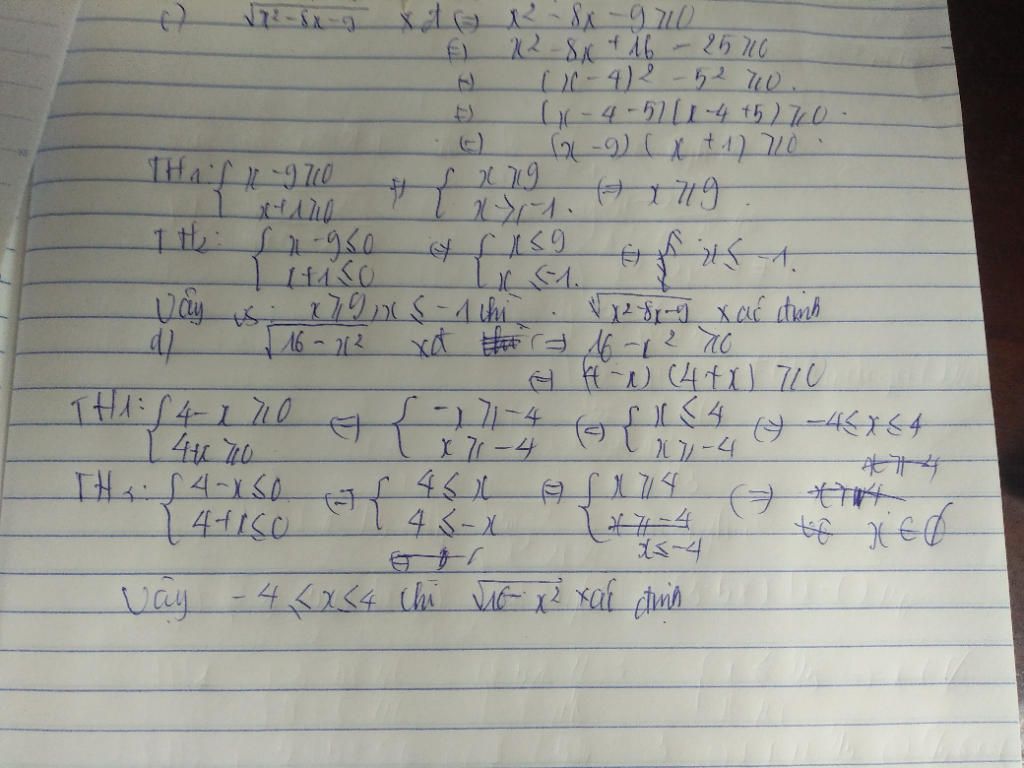 c) √(x²-8x-9) xđ (=) x² - 8x - 9 ≥ 0
(=) x² - 8x + 16 - 25 ≥ 0
(=) (x - 4)² - 5² ≥ 0.
(=) (x - 4 - 5)(x - 4 + 5) ≥ 0.
(=) (x - 9)(x + 1) ≥ 0.
TH1: { x - 9 ≥ 0 (=) { x ≥ 9 (=) x ≥ 9.
x + 1 ≥ 0 x ≥ -1.
TH2: { x - 9 ≤ 0 (=) { x ≤ 9 (=) x ≤ -1.
x + 1 ≤ 0 x ≤ -1.
Vậy x ≥ 9, x ≤ -1 thì √(x²-8x-9) xác định
d) √(16 - x²) xđ (=) 16 - x² ≥ 0
(=) (4 - x)(4 + x) ≥ 0
TH1: { 4 - x ≥ 0 (=) { -x ≥ -4 (=) { x ≤ 4 (=) -4 ≤ x ≤ 4
4+x ≥ 0 x ≥ -4 x ≥ -4
TH2: { 4 - x ≤ 0 (=) { 4 ≤ x (=) { x ≥ 4 (=)
4 + x ≤ 0 4 ≤ -x x ≤ -4 x ∈ ∅
Vậy -4 ≤ x ≤ 4 thì √(16 - x²) xác định